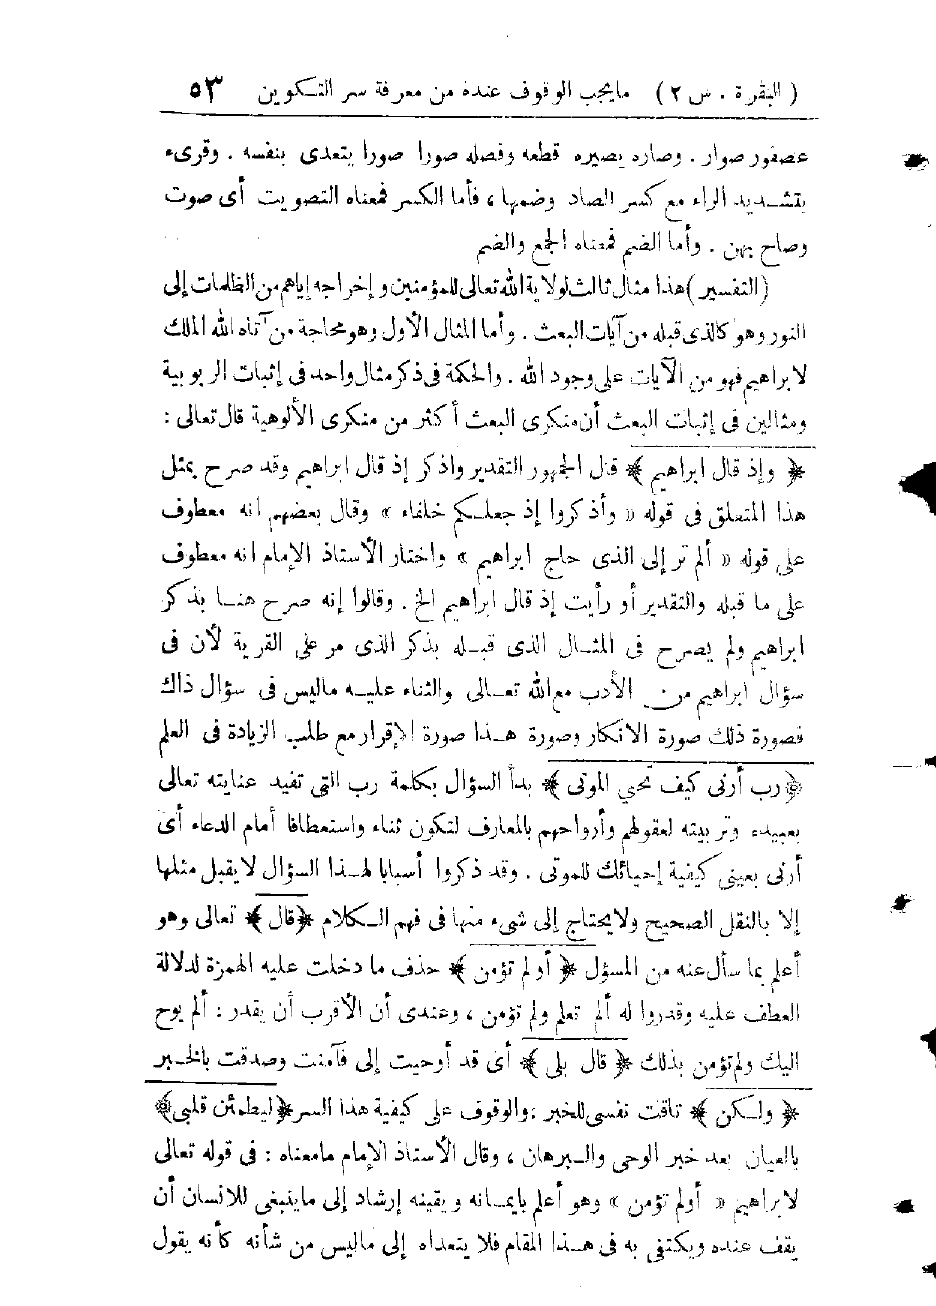 ( البقرة . س ٢ ) مايجب الوقوف عنده من معرفة سر التكوين ٥٣
عصفور صوار . وصاره يصيره قطعه وفصله صورا صورا يتعدى بنفسه . وقرىء
بتشديد الراء مع كسر الصاد وضمها ، فأما الكسر فمعناه التصويت أى صوت
وصاح بهن . وأما الضم فمعناه الجمع والضم
( التفسير ) هذا مثال ثالث لولاية الله تعالى للمؤمنين وإخراجه إياهم من الظلمات إلى
النور وهو كالذى قبله من آيات البعث . وأما المثال الأول وهو محاجة من آتاه الله الملك
لابراهيم فهو من الآيات على وجود الله . والحكمة فى ذكر مثال واحد فى إثبات الربوبية
ومثالين فى إثبات البعث أن منكرى البعث أكثر من منكرى الألوهية قال تعالى :
﴿ وإذ قال ابراهيم ﴾ قال الجمهور التقدير واذكر إذ قال ابراهيم وقد صرح بمثل
هذا المتعلق فى قوله « وأذكروا إذ جعلكم خلفاء » وقال بعضهم انه معطوف
على قوله « ألم تر إلى الذى حاج ابراهيم » واختار الأستاذ الإمام انه معطوف
على ما قبله والتقدير أو رأيت إذ قال ابراهيم الخ . وقالوا إنه صرح هنا بذكر
ابراهيم ولم يصرح فى المثال الذى قبله بذكر الذى مر على القرية لأن فى
سؤال ابراهيم من الأدب مع الله تعالى والثناء عليه ماليس فى سؤال ذاك
فصورة ذلك صورة الانكار وصورة هذا صورة الإقرار مع طلب الزيادة فى العلم
﴿ رب أرنى كيف تحيي الموتى ﴾ بدأ السؤال بكلمة رب التى تفيد عنايته تعالى
بعبيده وتربيته لعقولهم وأرواحهم بالمعارف لتكون ثناء واستعطافا أمام الدعاء أى
أرنى بعينى كيفية إحيائك للموتى . وقد ذكروا أسبابا لهذا السؤال لا يقبل مثلها
إلا بالنقل الصحيح ولا يحتاج إلى شىء منها فى فهم الكلام ﴿ قال ﴾ تعالى وهو
أعلم بما سأل عنه من المسؤل ﴿ أولم تؤمن ﴾ حذف ما دخلت عليه الهمزة لدلالة
العطف عليه وقدروا له ألم تعلم ولم تؤمن ، وعندى أن الأقرب أن يقدر : ألم يوح
اليك ولم تؤمن بذلك ﴿ قال بلى ﴾ أى قد أوحيت إلى فآمنت وصدقت بالخبر
﴿ ولكن ﴾ تاقت نفسى للخبر ، والوقوف على كيفية هذا السر ﴿ ليطمئن قلبى ﴾
بالعيان بعد خبر الوحى والبرهان ، وقال الأستاذ الإمام مامعناه : فى قوله تعالى
لابراهيم « أولم تؤمن » وهو أعلم بايمانه ويقينه إرشاد إلى ماينبغى للانسان أن
يقف عنده ويكتفى به فى هذا المقام فلا يتعداه إلى ماليس من شأنه كأنه يقول